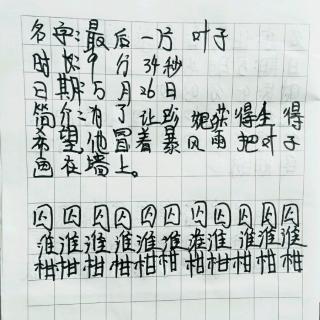 名字:最后一片 叶子
时长:9 分 34秒
日期:5 月 26 日
简介:为了 让 妮获得生 得
希望,他冒着暴风雨把叶子
画在墙上。
囚囚囚囚囚囚囚囚囚囚
淮淮淮淮淮淮淮淮淮淮
柑柑柑柑柑柑柑柑柑柑